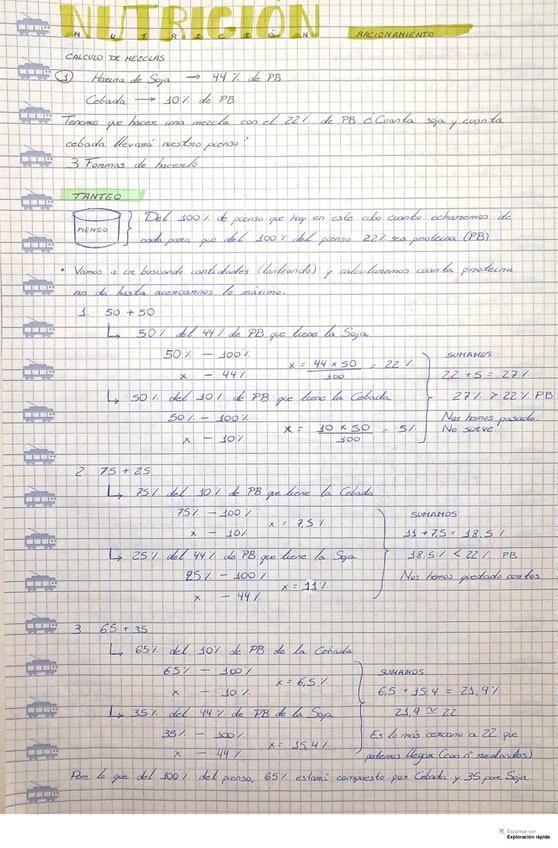 NUTRICIÓN
NUTRICIÓN RACIONAMIENTO
CALCULO DE MEZCLAS
1 Harina de Soja → 44% de PB
Cebada → 10% de PB
Tenemos que hacer una mezcla con el 22% de PB ¿Cuanta soja y cuanta
cebada llevará nuestro pienso?
3 Formas de hacerlo
TANTEO
PIENSO
Del 100% de pienso que hay en este cubo cuanto echaremos de
cada para que del 100% del pienso 22% sea proteina (PB)
• Vamos a ir buscando cantidades (tanteando) y calcularemos cuanta proteina
nos da hasta acercarnos lo máximo.
1. 50 + 50
↳ 50% del 44% de PB que tiene la Soja
50% - 100%
x - 44%
x = 44 x 50 / 100 = 22%
↳ 50% del 10% de PB que tiene la Cebada
50% - 100%
x - 10%
x = 10 x 50 / 100 = 5%
SUMAMOS
22 + 5 = 27%
27% > 22% PB
Nos hemos pasado.
No sirve.
2. 75 + 25
↳ 75% del 10% de PB que tiene la Cebada
75% - 100%
x - 10%
x = 7,5%
↳ 25% del 44% de PB que tiene la Soja
25% - 100%
x - 44%
x = 11%
SUMAMOS
11 + 7,5 = 18,5%
18,5% < 22% PB
Nos hemos quedado cortos
3. 65 + 35
↳ 65% del 10% de PB de la Cebada
65% - 100%
x - 10%
x = 6,5%
↳ 35% del 44% de PB de la Soja
35% - 100%
x - 44%
x = 15,4%
SUMAMOS
6,5 + 15,4 = 21,9%
21,9 ≃ 22
Es lo más cercano a 22 que
podemos llegar (con nº redondos)
Por lo que del 100% del pienso, 65% estará compuesto por Cebada y 35 por Soja
Escanear con
Exploración rápida